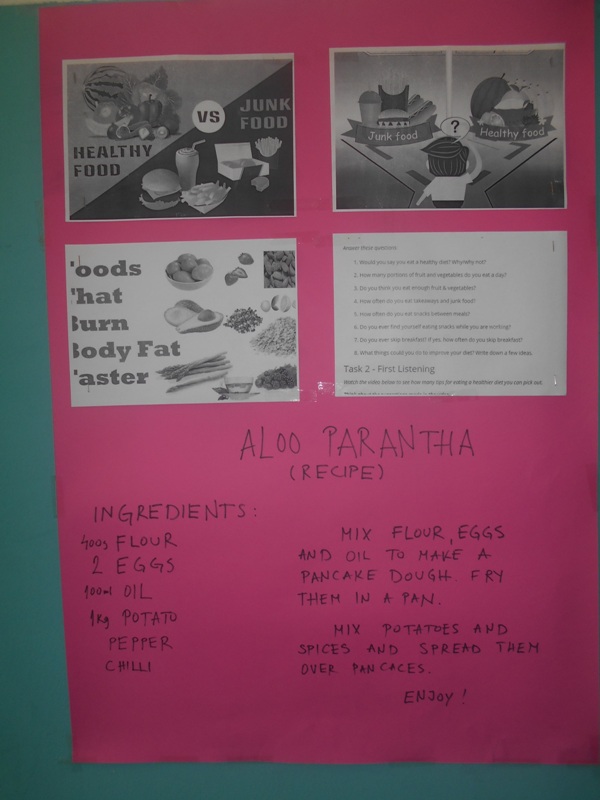 HEALTHY
FOOD
VS
JUNK
FOOD
Junk food
?
Healthy food
'oods
'hat
Burn
Body Fat
'aster
Answer these questions:
1. Would you say you eat a healthy diet? Why/why not?
2. How many portions of fruit and vegetables do you eat a day?
3. Do you think you eat enough fruit & vegetables?
4. How often do you eat takeaways and junk food?
5. How often do you eat snacks between meals?
6. Do you ever find yourself eating snacks while you are working?
7. Do you ever skip breakfast? If yes, how often do you skip breakfast?
8. What things could you do to improve your diet? Write down a few ideas.
Task 2 - First Listening
Watch the video below to see how many tips for eating a healthier diet you can pick out.
ALOO PARANTHA
(RECIPE)
INGREDIENTS:
400g FLOUR
2 EGGS
100ml OIL
1kg POTATO
PEPPER
CHILLI
MIX FLOUR, EGGS
AND OIL TO MAKE A
PANCAKE DOUGH. FRY
THEM IN A PAN.
MIX POTATOES AND
SPICES AND SPREAD THEM
OVER PANCACES.
ENJOY!